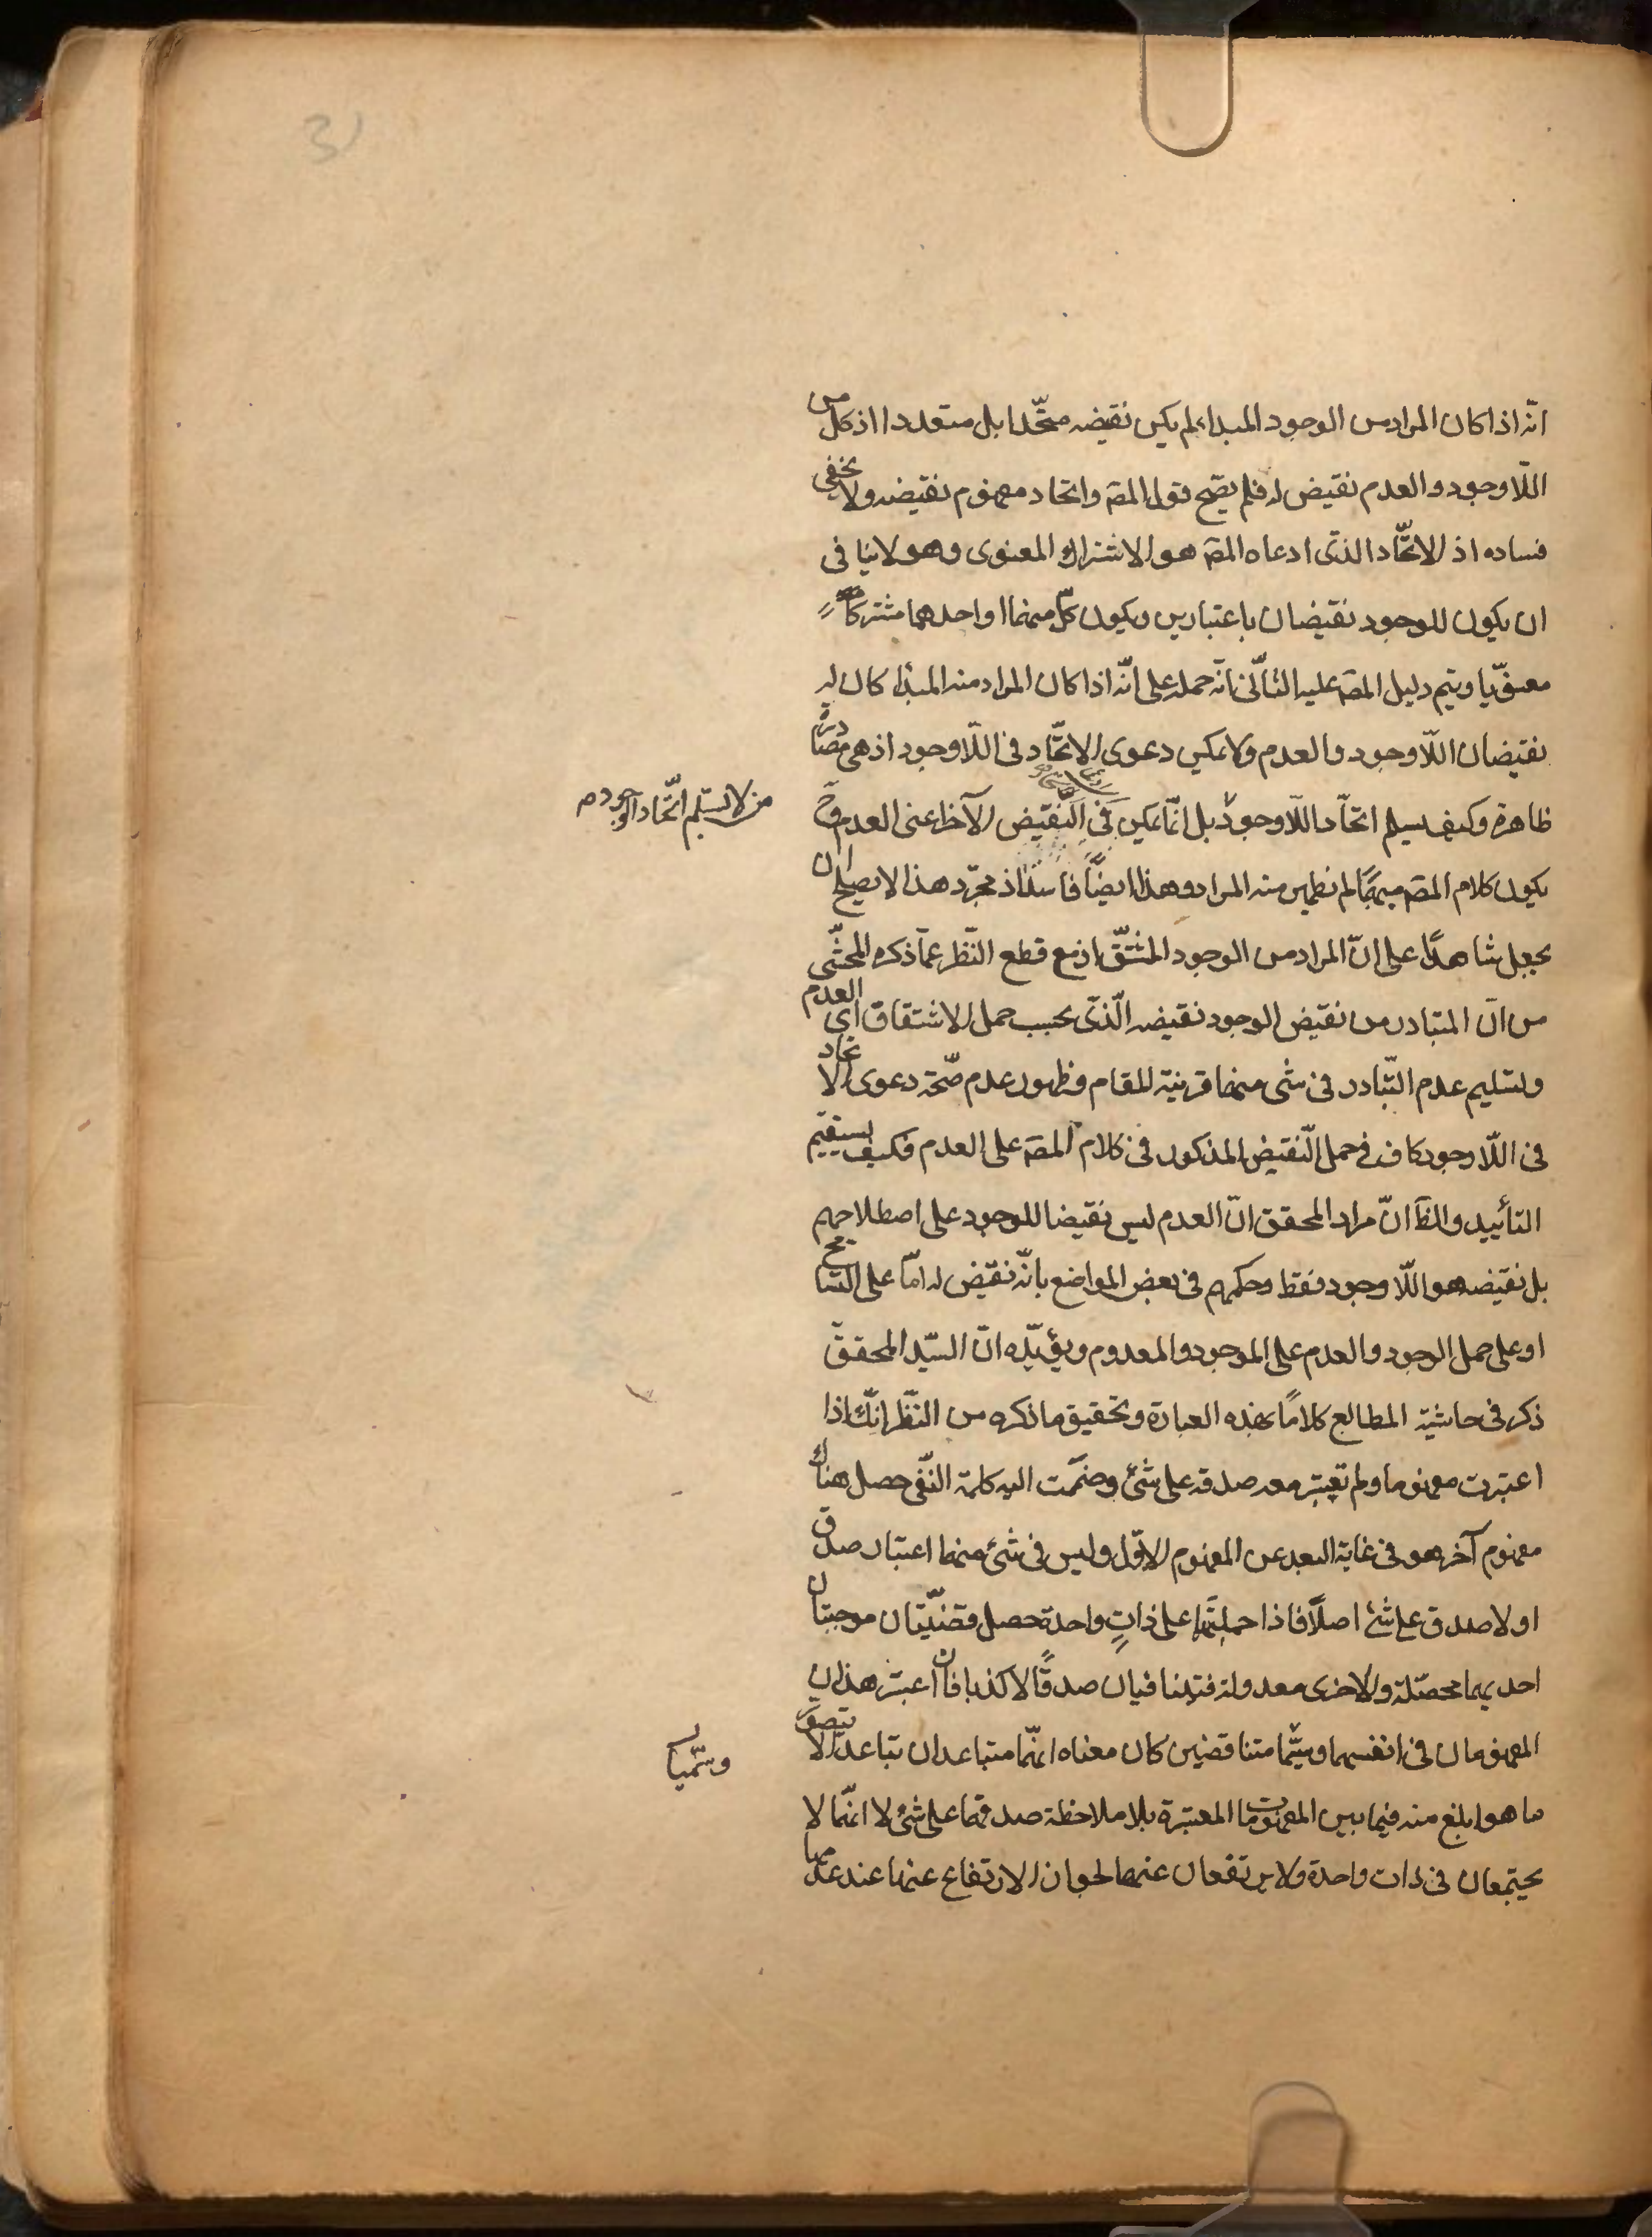 انّه اذا كان المراد من الوجود المبداء لم يكن نقيضه متّحدا بل متعددا اذ كل من
اللّاوجود والعدم نقيض له فلم يصّح قول المصه واتحاد مفهوم نقيضه ولا يخفى
فساده اذ الاتّحاد الذى ادعاه المصه هو الاشتراك المعنوى وهو لا ينافى
ان يكون للوجود نقيضان باعتبارين ويكون كلّ منهما او احدهما مشتركاً
معنوّيا ويتم دليل المصه عليه الثاّنى انّه حمله على انّه اذا كان المراد منه المبدأ كان له
نقيضان اللّاوجود والعدم ولا يمكن دعوى الاتّحاد فى اللّاوجود اذ هى مصادرة
ظاهرة وكيف يسلم اتحّاد اللّاوجود بل انّما يمكن فى النّقيض الآخر اعنى العدم وحَ
من لا يسلّم اتّحاد الوجود م
يكون كلام المصه مبهمًا لم نظهر منه المراد وهذا ايضًا فاسد اذ مجرّد هذا لا يصلح ان
يجعل شاهدًا على انّ المراد من الوجود المشتّق اذ مع قطع النّظر عمّا ذكره المحشّى
من انّ المتبادر من نقيض الوجود نقيضه الّذى بحسب حمل الاشتقاق اى العدم
وتسليم عدم التّبادر فى شى منهما قرينة المقام وظهور عدم صّحة دعوى الاتحاد
فى اللّاوجود كاف فى حمل النّقيض المذكور فى كلام المصه على العدم فكيف يستقيم
التأييد والظَ انّ مراد المحقق انّ العدم ليس نقيضا للوجود على اصطلاحهم
بل نقيضه هو اللّاوجود فقط وحكمهم فى بعض المواضع بانّه نقيض له امّا على التسامح
او على حمل الوجود والعدم على الموجود والمعدوم ويؤيّده انّ السيّد المحقق
ذكر فى حاشية المطالع كلامًا بهذه العبارة وتحقيق ما ذكره من النّظر انّك اذا
اعتبرت مفهوما ولم تعتبر معه صدقه على شئ وضمّمت اليه كلمة النّفى حصل هناك
مفهوم آخر هو فى غاية البعد عن المفهوم الاوّل وليس فى شئ منهما اعتبار صدق
او لا صدق على شئ اصلًا فاذا حملتهما على ذاتٍ واحدة حصل قضيّتان موجبتان
احديهما محصّلة والاخرى معدولة فتتنافيان صدقًا لا كذبا فان اعتبر هذان
المفهومان فى انفسهما وسمّيا متناقضين كان معناه انّهما متباعدان تباعدًا لا يتصوّر
وسمّيا
ما هو ابلغ منه فيما بين المفهومات المعتبرة بلا ملاحظة صدقهما على شئ لا انّهما لا
يجتمعان فى ذات واحدة ولا يرتفعان عنهما لجواز الارتفاع عنها عند عدمها